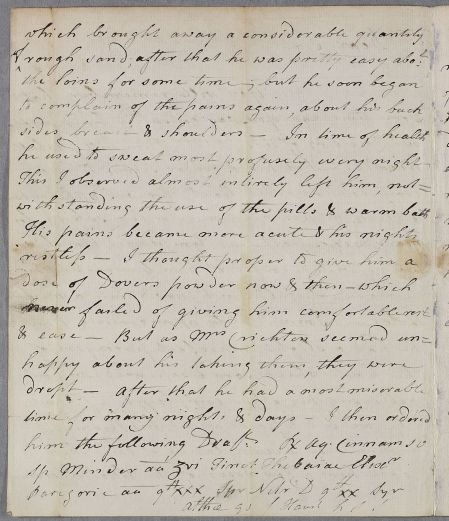 which brought away a considerable quantity
of rough sand, after that he was pretty easy abot
the loins for some time, but he soon began
to complain of the pains again, about his back
sides, breast & shoulders — In time of health
he used to sweat most profusely every night
This I observed almost intirely left him, not=
withstanding the use of the pills & warm bath
His pains became more acute & his nights
restless — I thought proper to give him a
dose of Dovers powder now & then — which
never failed of giving him comfortable rest
& ease — But as Mrs Crichton seemed un=
happy about his taking them, they were
dropt — After that he had a most miserable
time for many nights & days — I then ordered
him the following Draft. Rx Aq. Cinnam
Sp Minder aa ʒvi Tinct. Thebaicae Elixr
Paregoric aa gtt xxx Spr Nitr D gtt xx Syr